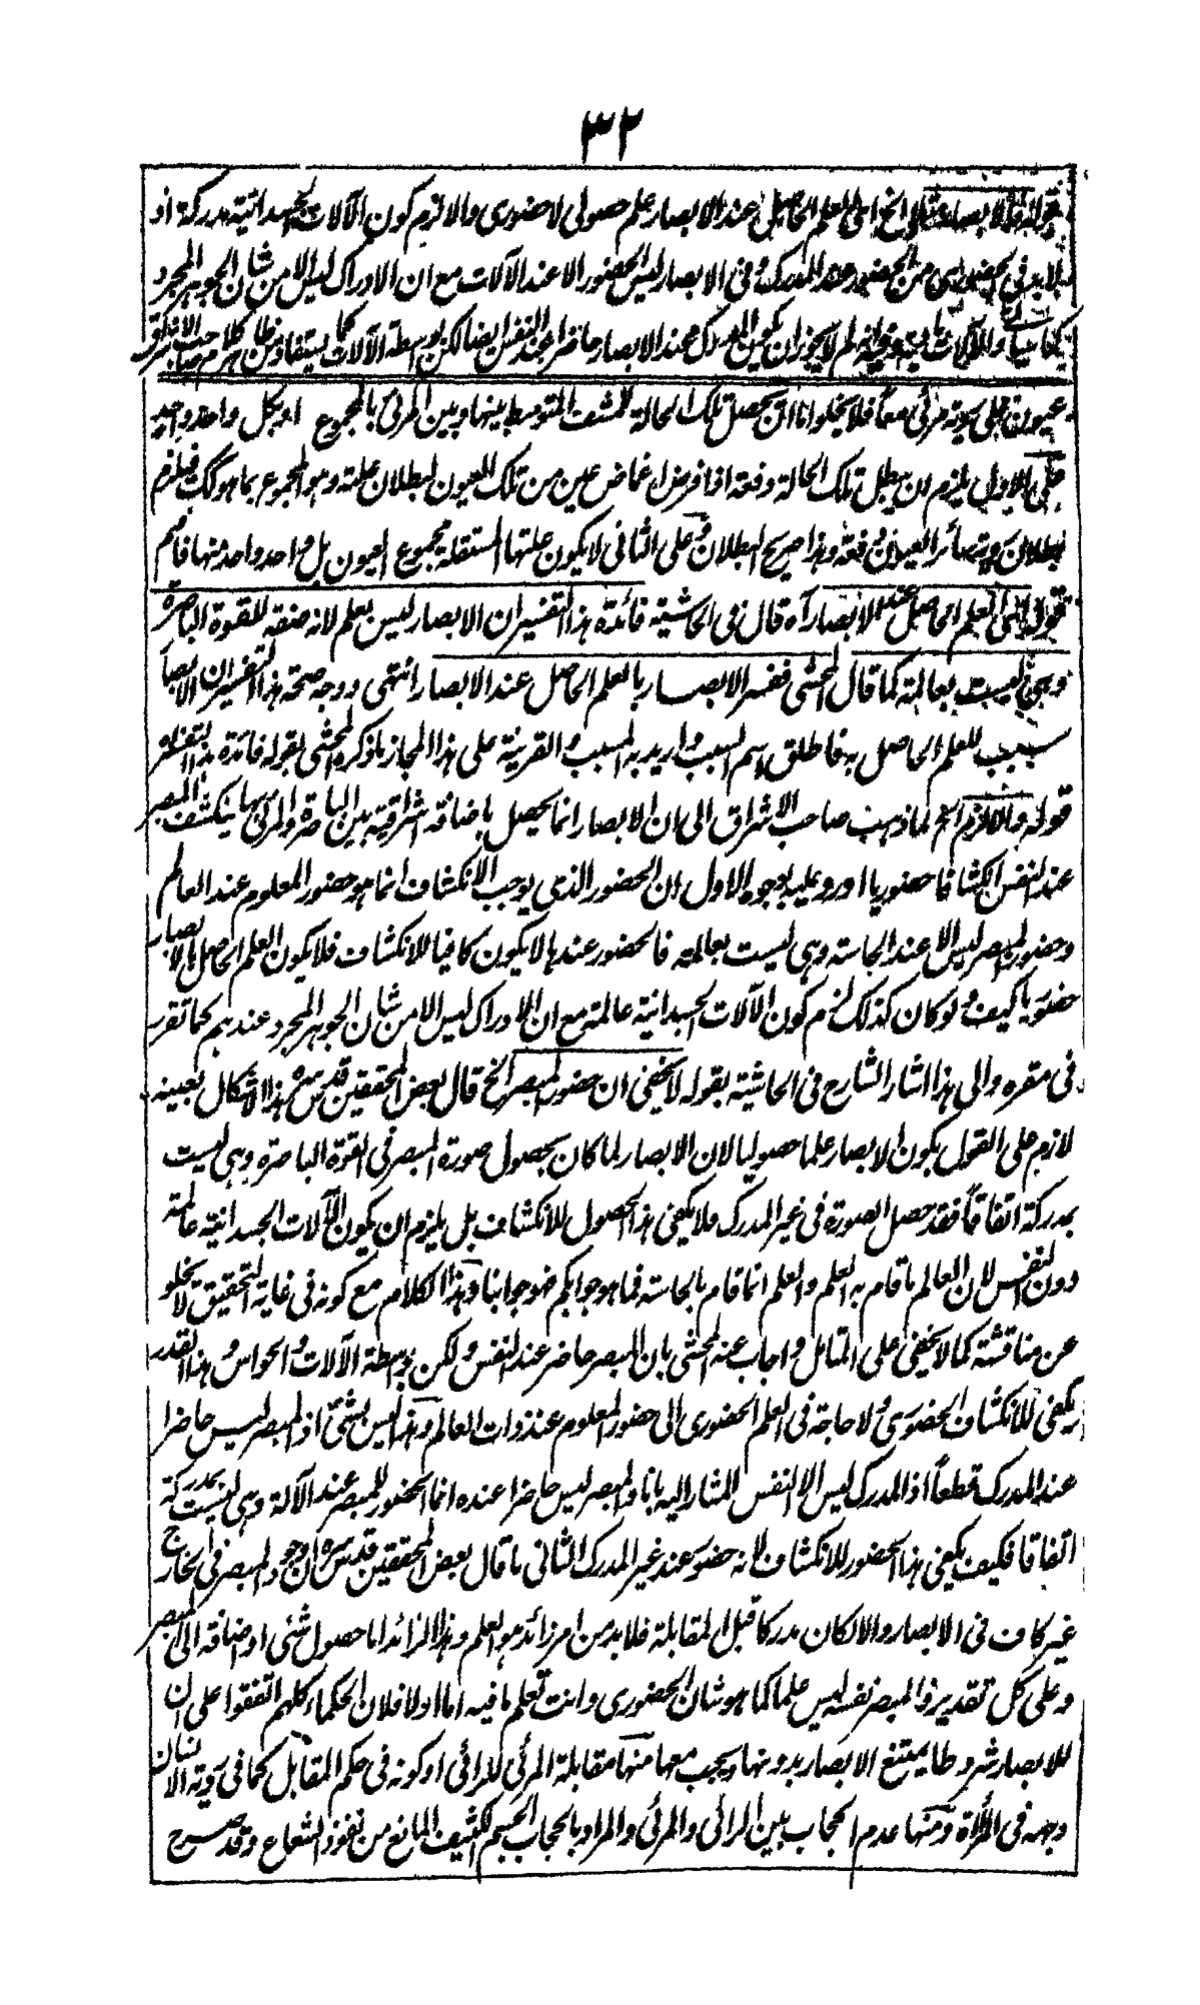 ٣٢
قوله فالابصار مثلا الخ اى العلم الحاصل عند الابصار علم حصولى لا حضورى والا لزم كون الآلات الجسدانية مدركة اذ
لا بد فى الحضورى من الحضور عند المدرك وفى الابصار ليس الحضور الا عند الآلات مع ان الادراك ليس الا من شان الجوهر المجرد
والآلات لم لا يجوز ان يكون المدرك عند الابصار حاضرا عند النفس ايضا لكن بواسطة الآلات كما يستفاد من ظاهر كلام صاحب الاشراق
عيون على رؤية مرئى معا فلا يخلو اما ان يحصل تلك الحالة للمشف المتوسط بينها وبين المرئى بالمجموع او بكل واحد واحد
على الاول يلزم ان يبطل تلك الحالة دفعة اذا فرض اغماض عين من تلك العيون لبطلان علته وهو المجموع بما هو كك فيلزم
بطلان رؤية سائر العيون دفعة وهذا صريح البطلان وعلى الثانى لا يكون علتها المستقلة مجموع العيون بل واحد واحد منها فافهم
قوله اى العلم الحاصل عند الابصار آه قال فى الحاشية فائدة هذا التفسير ان الابصار ليس بعلم لانه صفة للقوة الباصرة
وهى ليست بعالمة كما قال المحشى ففسر الابصار بالعلم الحاصل عند الابصار انتهى ووجه صحة هذا التفسير ان الابصار
سبب للعلم الحاصل به فاطلق اسم السبب واريد به المسبب والقرينة على هذا المجاز ما ذكره المحشى بقوله فائدة هذا التفسير
قوله والا لزم الخ لما ذهب صاحب الاشراق الى ان الابصار انما يحصل باضافة اشراقية بين الباصرة والمرئى بها ينكشف المبصر
عند النفس انكشافا حضوريا اورد عليه بوجوه الاول ان الحضور الذى يوجب الانكشاف انما هو حضور المعلوم عند العالم
وحضور المبصر ليس الا عند الحاسة وهى ليست بعالمة فالحضور عندها لا يكون كافيا للانكشاف فلا يكون العلم الحاصل بالابصار
حضوريا كيف ولو كان كذلك لزم كون الآلات الجسدانية عالمة مع ان الادراك ليس الا من شان الجوهر المجرد عندهم كما تقرر
فى مقره والى هذا اشار الشارح فى الحاشية بقوله لا يخفى ان حضور المبصر الخ قال بعض المحققين قدس سره هذا الاشكال بعينه
لازم على القول بكون الابصار علما حصوليا لان الابصار لما كان بحصول صورة المبصر فى القوة الباصرة وهى ليست
بمدركة اتفاقا فقد حصل الصورة فى غير المدرك فلا يكفى هذا الحصول للانكشاف بل يلزم ان يكون الآلات الجسدانية عالمة
دون النفس لان العالم ما قام به العلم والعلم انما قام بالحاسة فما هو جوابكم فهو جوابنا وهذا الكلام مع كونه فى غاية التحقيق لا يخلو
عن مناقشة كما لا يخفى على المتامل واجاب عنه المحشى بان المبصر حاضر عند النفس ولكن بواسطة الآلات والحواس وهذا القدر
يكفى للانكشاف الحضورى ولا حاجة فى العلم الحضورى الى حضور المعلوم عند ذات العالم وهذا ليس بشئ اذ المبصر ليس حاضرا
عند المدرك قطعا اذ المدرك ليس الا النفس المشار اليه بانا والمبصر ليس حاضرا عنده انما الحضور للمبصر عند الآلة وهى ليست بمدركة
اتفاقا فكيف يكفى هذا الحضور للانكشاف لانه حضور عند غير المدرك الثانى ما قال بعض المحققين قدس سره ان وجود المبصر فى الخارج
غير كاف فى الابصار والا لكان مدركا قبل المقابلة فلا بد من امر زائد هو العلم وهذا الزائد اما حصول شئ او اضافة الى المبصر
وعلى كل تقدير فالمبصر نفسه ليس علما كما هو شان الحضورى وانت تعلم ما فيه اما اولا فلان الحكماء كلهم اتفقوا على ان
للابصار شروطا يمتنع الابصار بدونها ويجب معها منها مقابلة المرئى للرائى او كونه فى حكم المقابل كما فى رؤية الانسان
وجهه فى المرأة ومنها عدم الحجاب بين الرائى والمرئى والمراد بالحجاب الجسم الكثيف المانع من نفوذ الشعاع وقد صرح